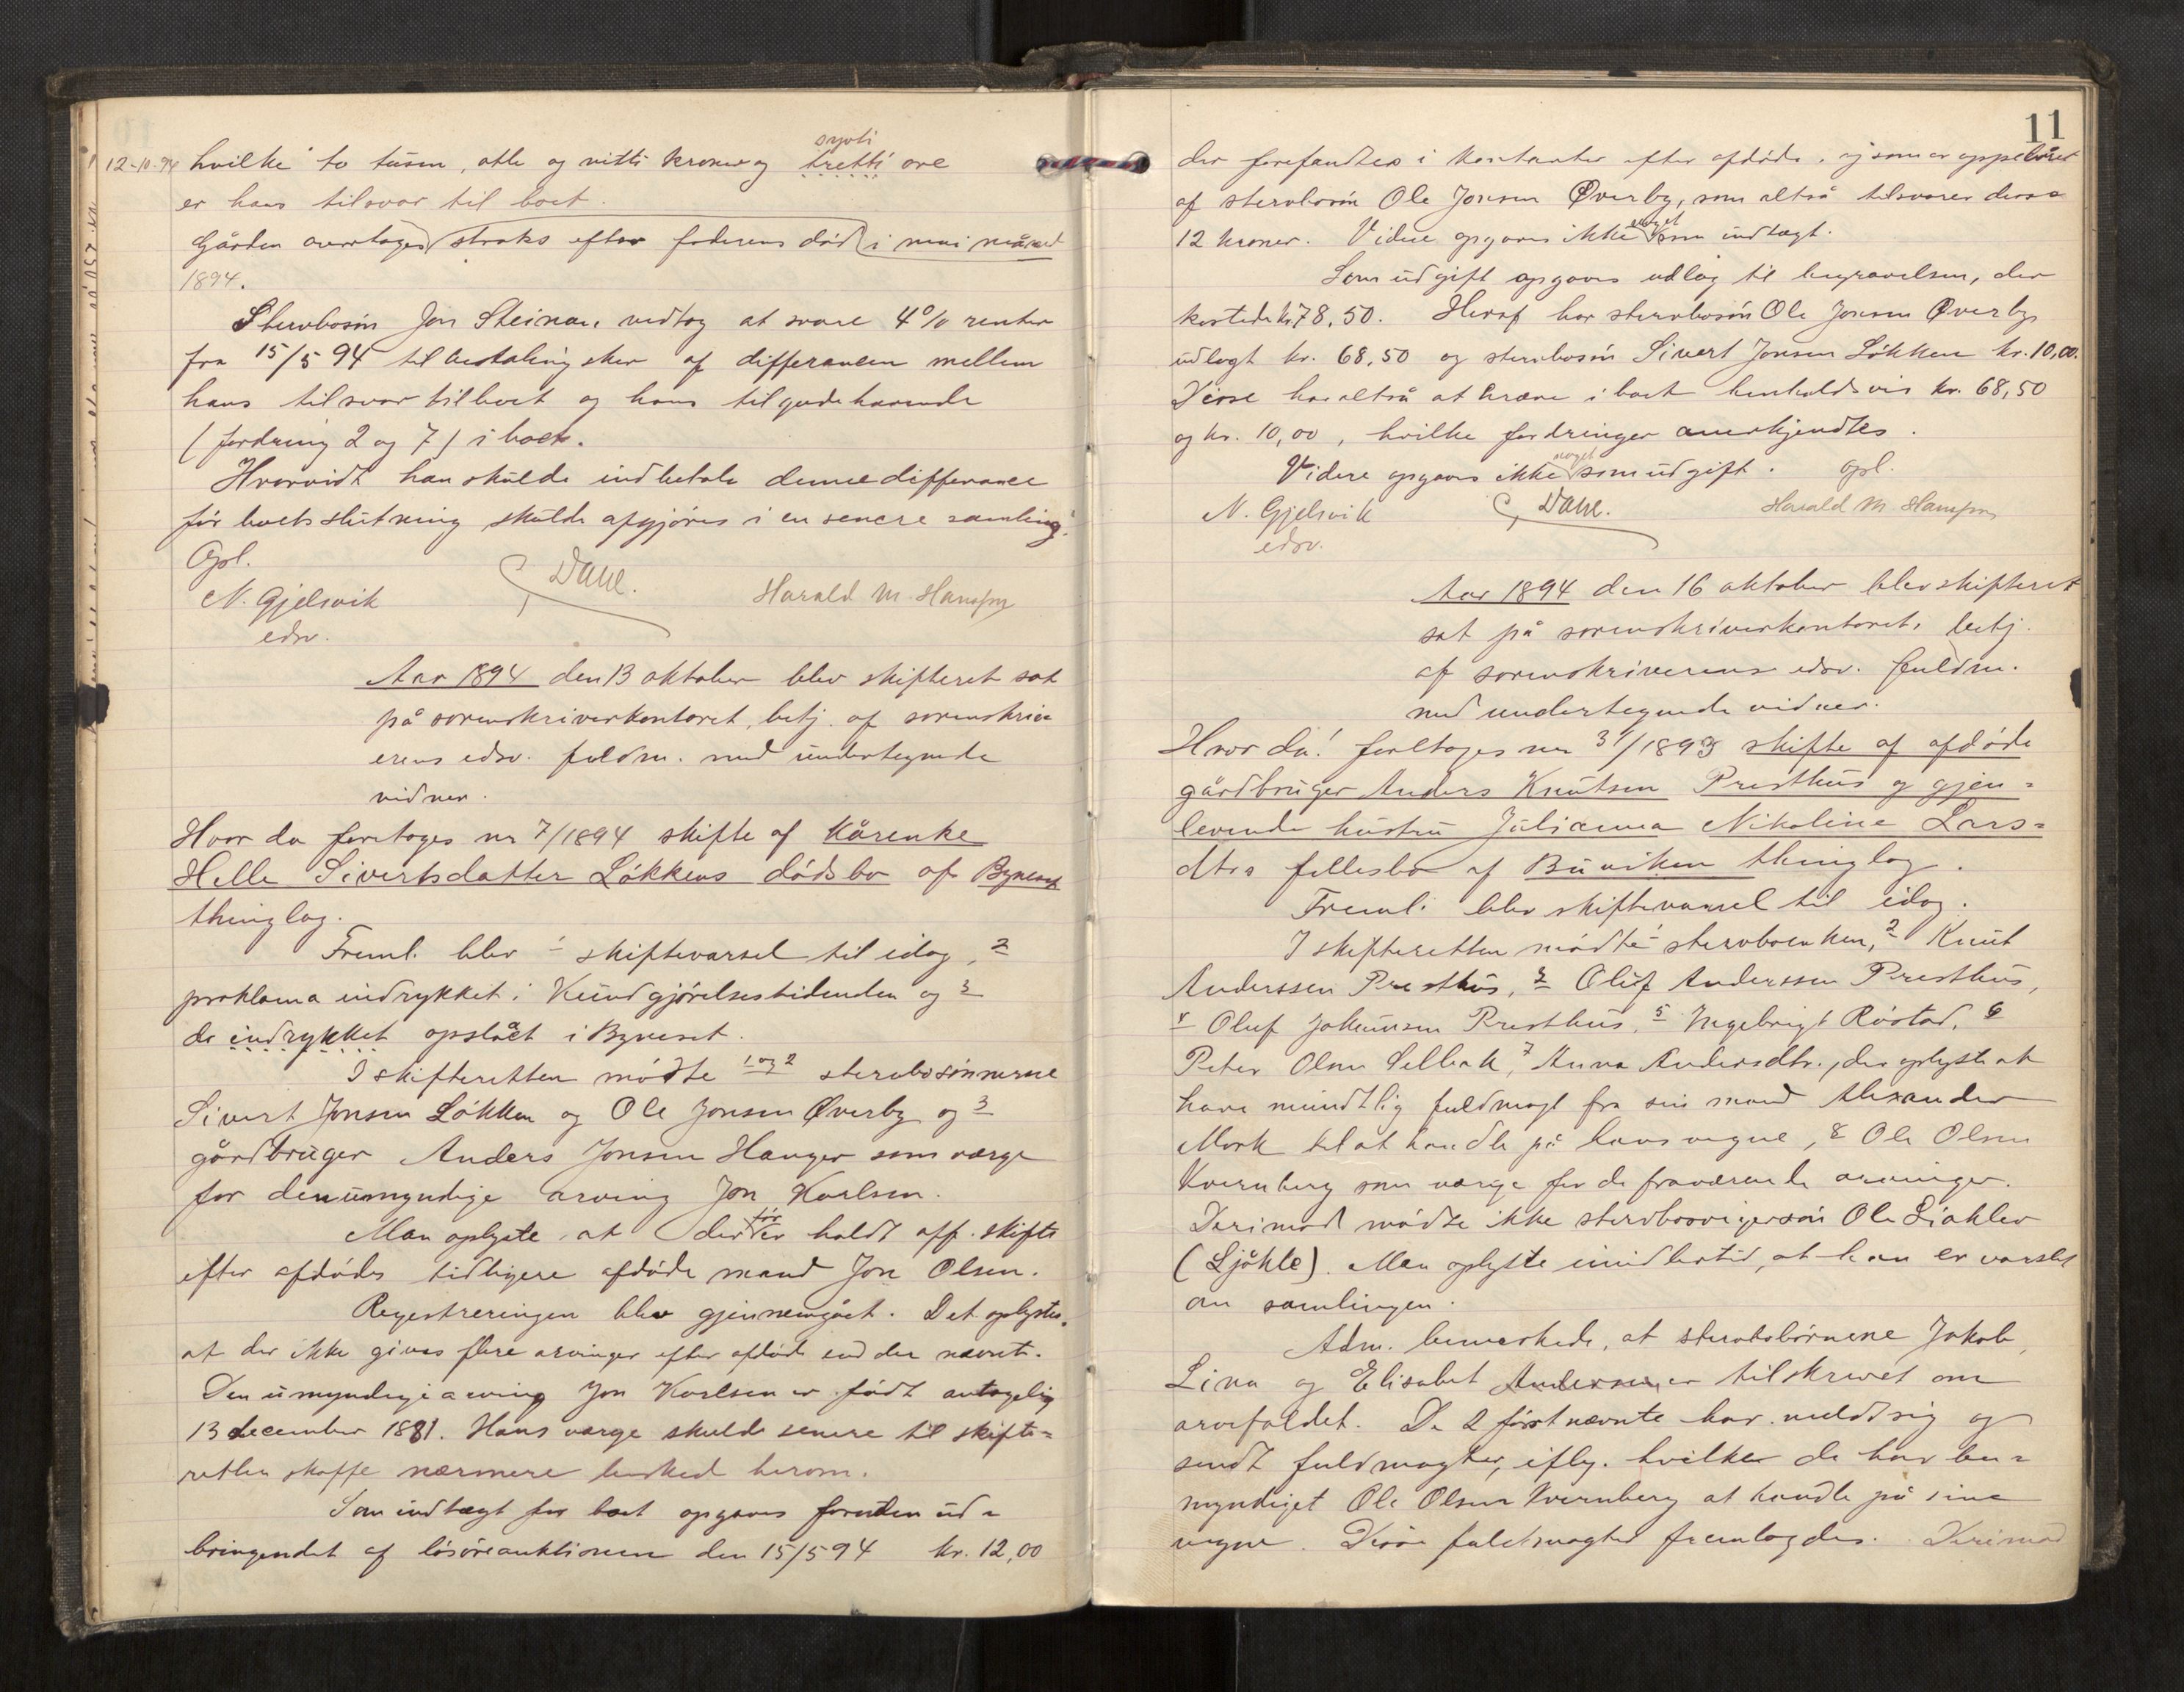 12-10-94 hvilke to tusen, otte og nitti kroner og tretti øre
sytti
er hans tilsvar til boet.
Gården overtages straks efter faderens död i mai måned
1894.
Stervbosön Jon Steinar vedtog at svare 4% renter
fra 15/5 94 til betaling sker af differancen mellem
hans tilsvar til boet og hans tilgodehavende
(fordring 2 og 7) i boet.
Hvorvidt han skulde indbetale denne differance
för boets slutning skulde afgjöres i en senere samling.
Opl.
N. Gjelsvik
edsv.
Dahl.
Harald M. Hansen
Aar 1894 den 13 oktober blev skifteret sat
på sorenskriverkontoret, betj. af sorenskriv
erens edsv. fuldm. med undertegnede
vidner.
Hvor da foretoges nr 7/1894 skifte af Kårenke
Helle Sivertsdatter Lökkens dödsbo af Bynesset
thinglag.
Freml. blev 1 skiftevarsel til idag, 2
proklama indrykket i Kundgjörelsestidenden og 3
do indrykket opslået i Byneset.
I skifteretten mödte 1 og 2 stervbosönnerne
Sivert Jonsen Lökken og Ole Jonsen Øverby og 3
gårdbruger Anders Jonsen Hanger som værge
for den umyndige arving Jon Karlsen.
Man oplyste at der för er holdt off. skifte
efter afdödes tidligere afdöde mand Jon Olsen.
Registreringen blev gjennemgået. Det oplystes,
at der ikke gives flere arvinger efter afdöde end der nævnt.
Den umyndige arving Jon Karlsen er födt antagelig
13 december 1881. Hans værge skulde senere til skifte=
retten skaffe nærmere besked herom.
Som indtægt for boet opgaves foruden ud=
bringendet af lösöreauktionen den 15/5 94 kr. 12,00
11
der forefandtes i kontanter efter afdöde, og som er oppebåret
af stervbosön Ole Jonsen Øverby, som altså tilsvarer disse
12 kroner. Videre opgaves ikke noget som indtægt.
Som udgift opgaves udlæg til begravelsen, der
kostede kr. 78,50. Heraf har stervbosön Ole Jonsen Øverby
udlagt kr. 68,50 og stervbosön Sivert Jonsen Lökken kr. 10,00.
Disse har altså at kræve i boet henholdsvis kr. 68,50
og kr. 10,00, hvilke fordringer anerkjendtes.
Videre opgaves ikke noget som udgift. Opl.
N. Gjelsvik
edsv.
Dahl.
Harald M. Hansen
Aar 1894 den 16 oktober blev skifteret
sat på sorenskriverkontoret, betj.
af sorenskriverens edsv. fuldm.
med undertegnede vidner.
Hvor da! foretoges nr 31/1893 skifte af afdöde
gårdbruger Anders Knutsen Presthus og gjen=
levende hustru Julianna Nikoline Lars=
dtrs fellesbo af Buviken thinglag.
Freml. blev skiftevarsel til idag.
I skifteretten mödte 1 stervboenken, 2 Knut
Anderssen Presthus, 3 Oluf Anderssen Presthus,
4 Oluf Johnnsen Presthus, 5 Ingebrigt Röstad, 6
Peter Olsen Selbak, 7 Anna Andersdtr., der oplyste at
have mundtlig fuldmagt fra sin mand Alexander
Mork til at handle på hans vegne, 8 Ole Olsen
Kvernberg som værge for de fraværende arvinger.
Derimod mödte ikke stervbosvigersön Ole Liöklev
(Ljökle). Man oplyste imidlertid, at han er varslet
om samlingen.
Adm. bemærkede, at stervbobörnene Jakob,
Lina og Elisabet Anderssen er tilskrevet om
arvefaldet. De 2 förstnævnte har meldt sig og
sendt fuldmagter, iflg. hvilke de har be=
myndiget Ole Olsen Kvernberg at handle på sine
vegne. Disse fuldmagter fremlagdes. Derimod